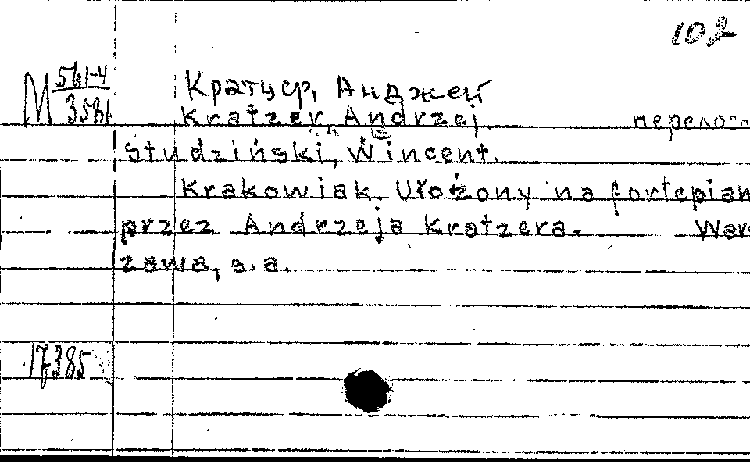 102
М 561-4/3581
Кратцер, Анджей
Kratzer, Andrzej перелож
Studziński, Wincent.
Krakowiak. Ułożony na fortepian
przez Andrzeja Kratzera. War
zawa, s.a.
17385